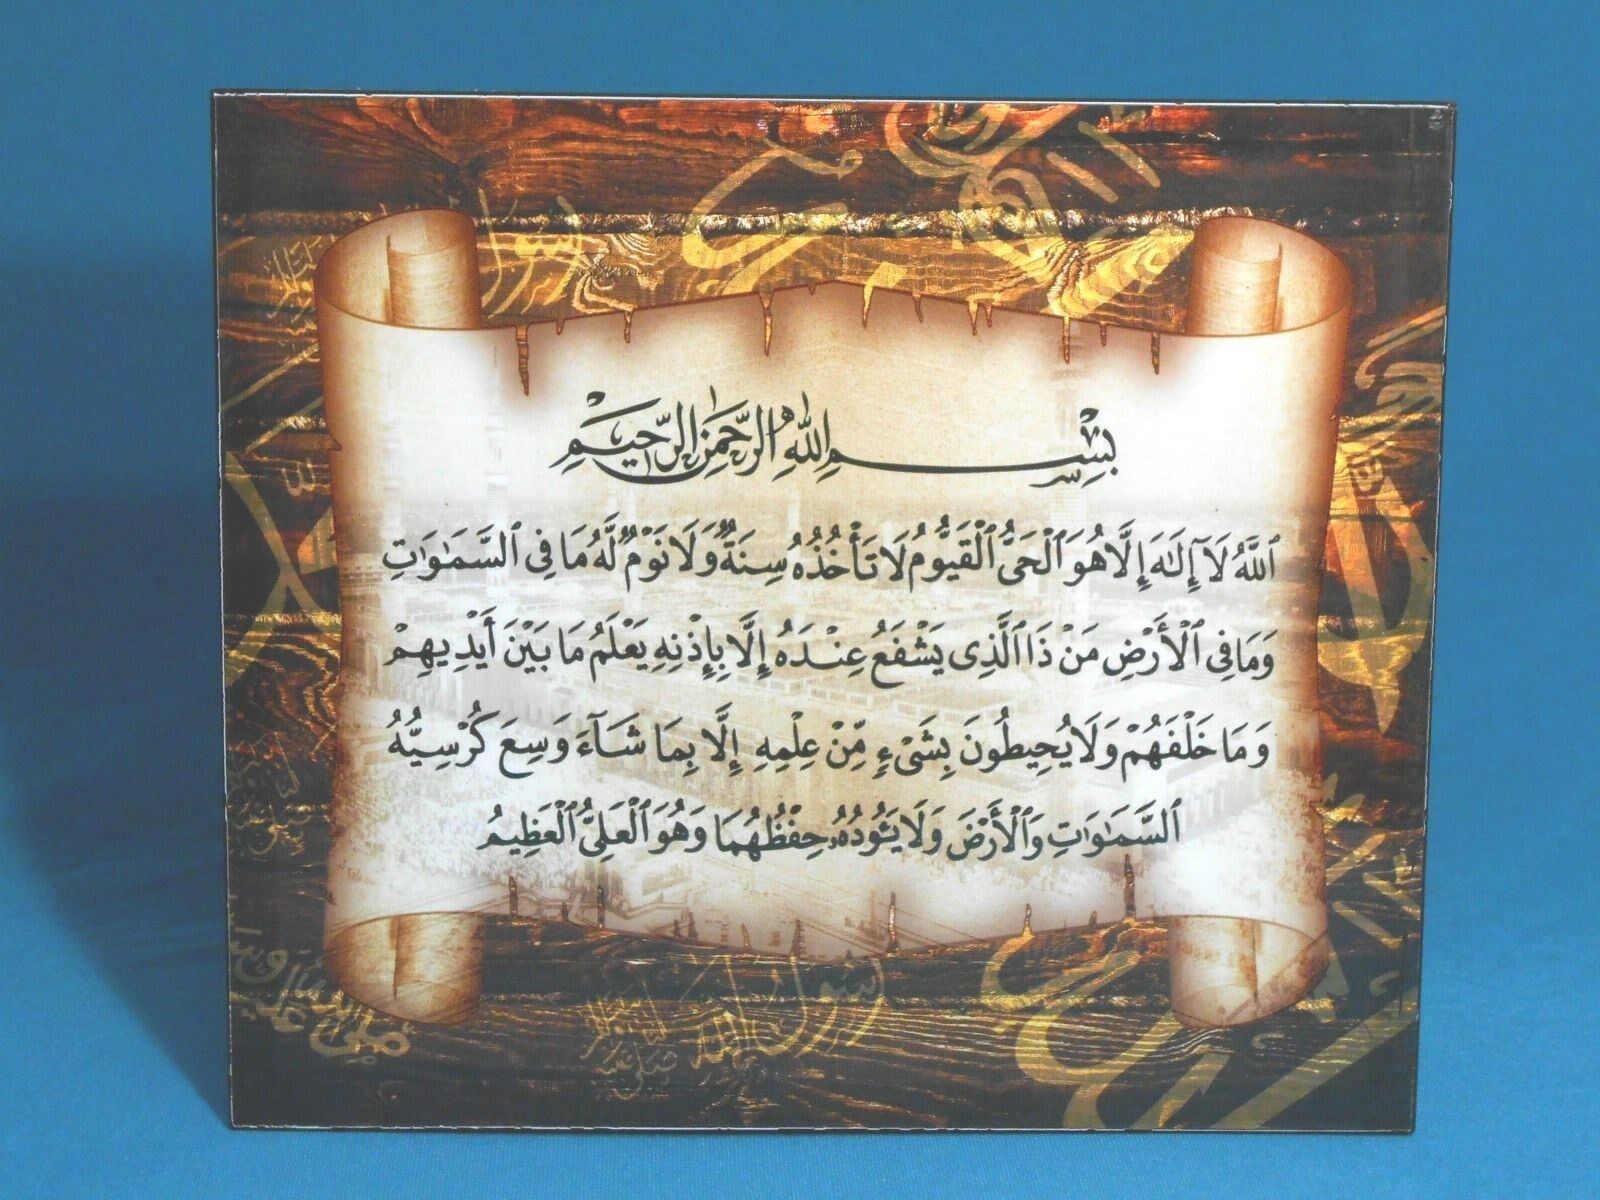 بِسْمِ اللهِ الرَّحْمٰنِ الرَّحِيمِ
ٱللَّهُ لَآ إِلَٰهَ إِلَّا هُوَ ٱلْحَىُّ ٱلْقَيُّومُ لَا تَأْخُذُهُ سِنَةٌ وَلَا نَوْمٌ لَّهُ مَا فِى ٱلسَّمَٰوَٰتِ
وَمَا فِى ٱلْأَرْضِ مَنْ ذَا ٱلَّذِى يَشْفَعُ عِنْدَهُ إِلَّا بِإِذْنِهِ يَعْلَمُ مَا بَيْنَ أَيْدِيهِمْ
وَمَا خَلْفَهُمْ وَلَا يُحِيطُونَ بِشَىْءٍ مِّنْ عِلْمِهِ إِلَّا بِمَا شَآءَ وَسِعَ كُرْسِيُّهُ
ٱلسَّمَٰوَٰتِ وَٱلْأَرْضَ وَلَا يَـُٔودُهُۥ حِفْظُهُمَا وَهُوَ ٱلْعَلِىُّ ٱلْعَظِيمُ
رسول الله